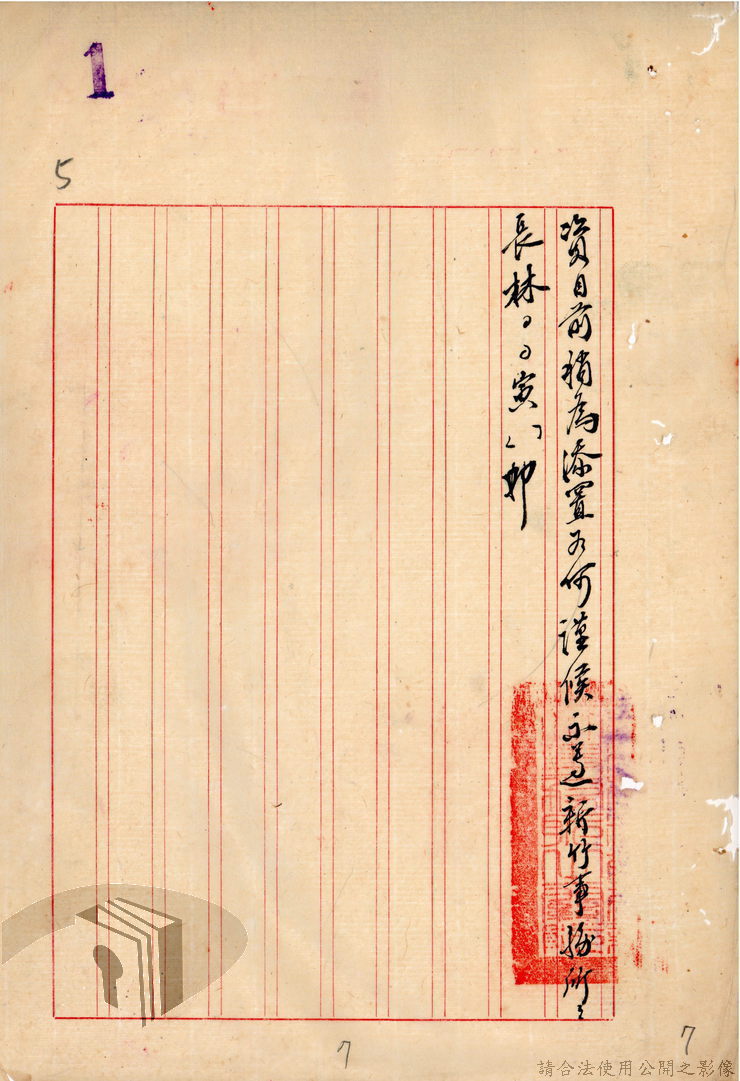 1
5
資目前稍為添置何謹候示遵新竹事務所々
長林寅叩
7
7
請合法使用公開之影像